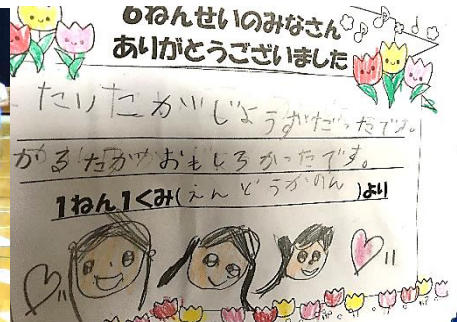 6ねんせいのみなさん
ありがとうございました
うずだったです。
かるたがおもしろかったです。
1ねん1くみ(えんどうかのん)より